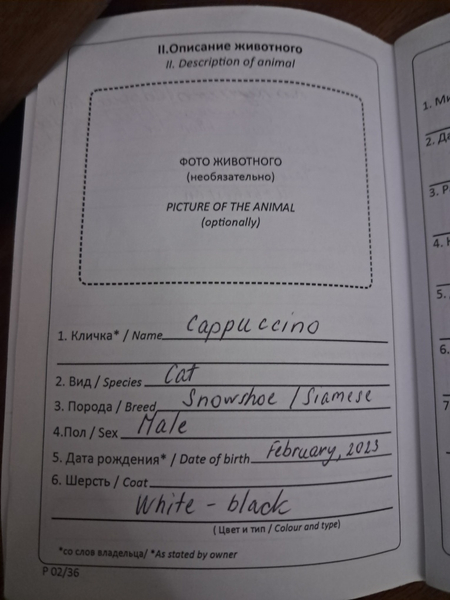 II.Описание животного
II. Description of animal
ФОТО ЖИВОТНОГО
(необязательно)
PICTURE OF THE ANIMAL
(optionally)
1. Кличка* / Name Cappuccino
2. Вид / Species Cat
3. Порода / Breed Snowshoe / Siamese
4.Пол / Sex Male
5. Дата рождения* / Date of birth February, 2023
6. Шерсть / Coat
White - black
( Цвет и тип / Colour and type)
*со слов владельца/ *As stated by owner
P 02/36
1.
2.
3.
4.
5.
6.
7